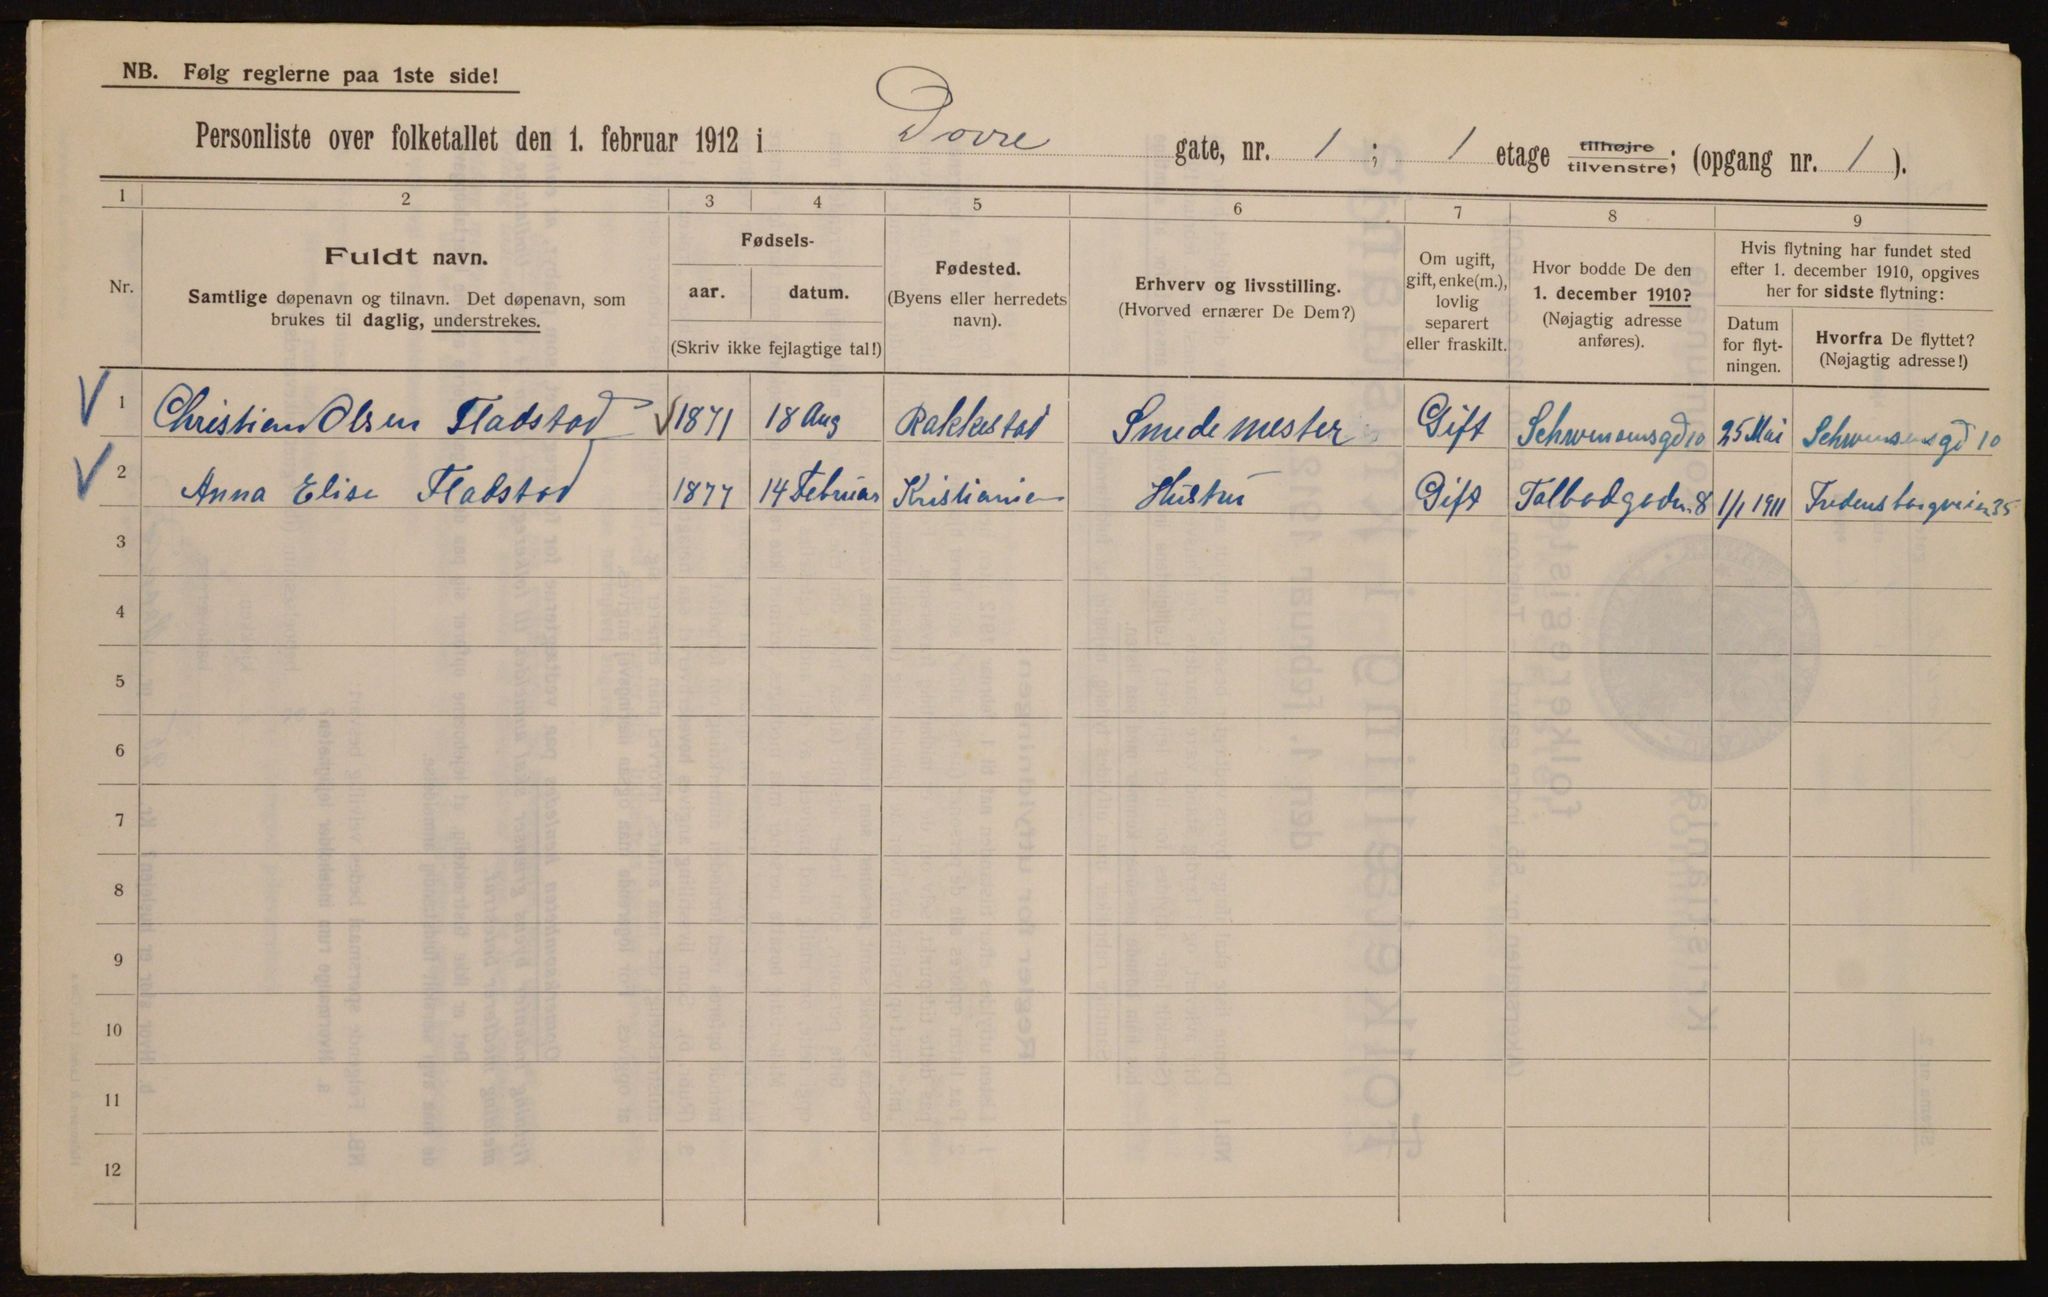 NB. Følg reglerne paa 1ste side!
Personliste over folketallet den 1. februar 1912 i Dovre gate, nr. 1 ; 1 etage tilhøjre tilvenstre; (opgang nr. 1 ).
1 2 3 4 5 6 7 8 9
Nr.
Fuldt navn.
Samtlige døpenavn og tilnavn. Det døpenavn, som
brukes til daglig, understrekes.
Fødsels-
aar. datum.
(Skriv ikke fejlagtige tal!)
Fødested.
(Byens eller herredets
navn).
Erhverv og livsstilling.
(Hvorved ernærer De Dem?)
Om ugift,
gift, enke(m.),
lovlig
separert
eller fraskilt.
Hvor bodde De den
1. december 1910?
(Nøjagtig adresse
anføres).
Hvis flytning har fundet sted
efter 1. december 1910, opgives
her for sidste flytning:
Datum
for flyt-
ningen.
Hvorfra De flyttet?
(Nøjagtig adresse!)
1 Christian Olsen Fladstad 1871 18 Aug Rakkestad Smedemester Gift 10 25 Mai 10
2 Anna Elise Fladstad 1877 14 Februar Kristiania Hustru Gift 8 1/1 1911 Fredensborgveien 35
3
4
5
6
7
8
9
10
11
12